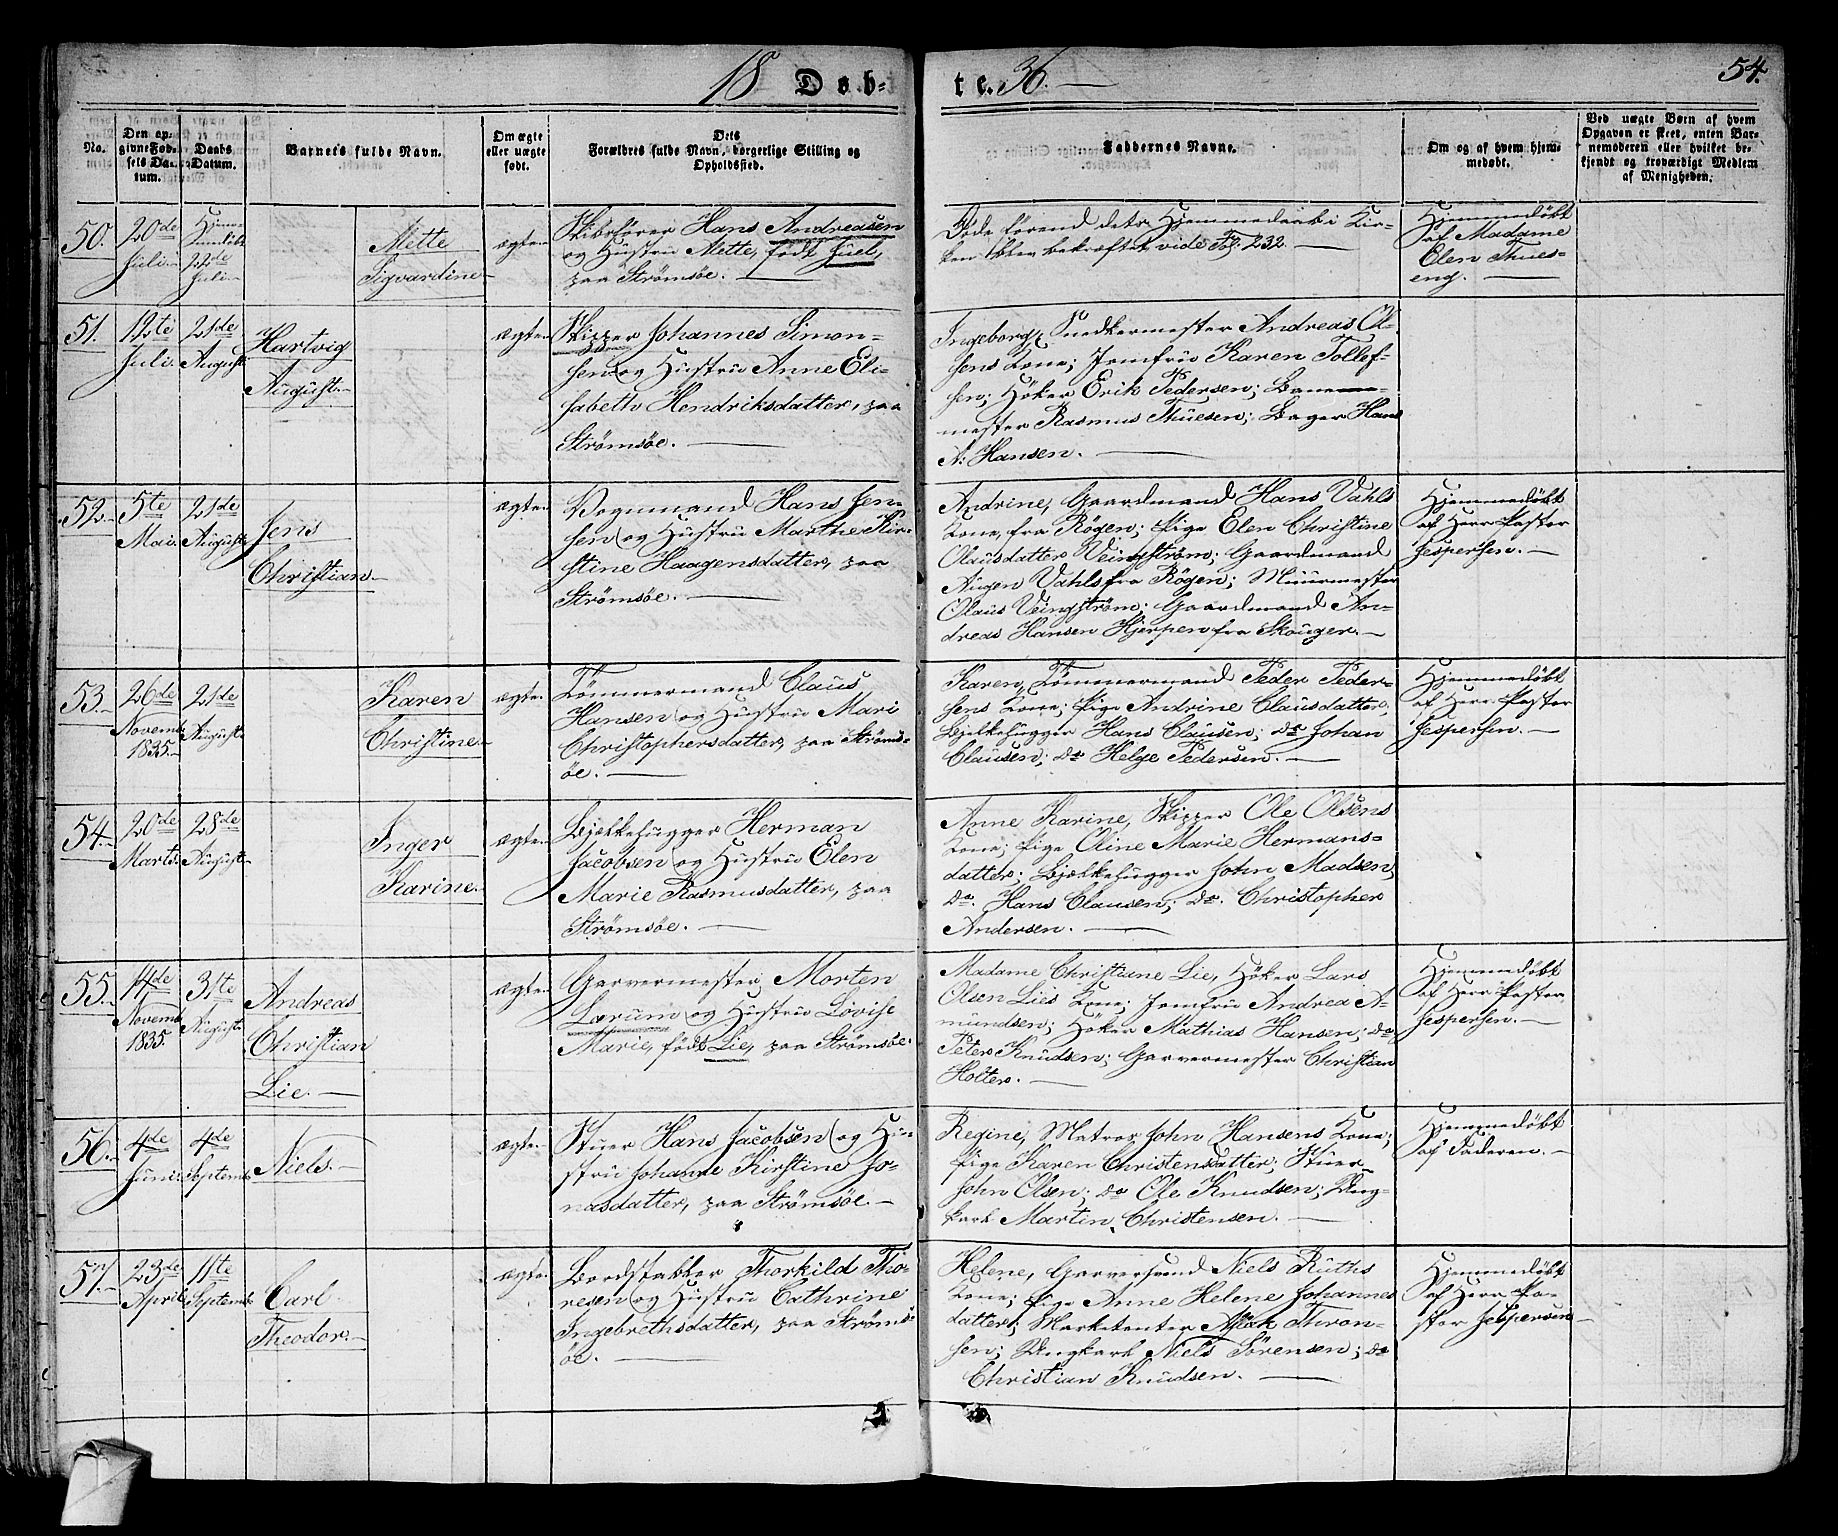 18 Døb-
te. 36.
54.
No.
Den an-
givne Fød-
sels Da-
tum.
Daabs
Datum.
Barnets fulde Navn.
Om ægte
eller uægte
født.
Dets
Forældres fulde Navn, borgerlige Stilling og
Opholdssted.
Faddernes Navne.
Om og af hvem hjem-
medøbt.
Ved uægte Børn af hvem
Opgaven er skeet, enten Bar-
nemoderen eller hvilket be-
kjendt og troværdigt Medlem
af Menigheden.
50.
20de
Juli.
Hjem-
medøbt
22de
Juli.
Mette
Sigvardine
ægte.
Skibsfører Hans Andreasen
og Hustru Mette, født Juel,
paa Strømsøe.
Døde førend dets Hjemmedaab i Kir-
ken blev bekræftet vide Fol. 232.
Hjemmedøbt
af Madame
Elen Thues-
eng.
51.
12te
Juli.
21de
August
Hartvig
August.
ægte.
Skipper Johannes Simon-
sen og Hustru Anne Eli-
sabeth Hendriksdatter, paa
Strømsøe.
Ingeborg, Snedkermester Andreas Ol-
sens Kone; Jomfru Karen Tollef-
sen; Høker Erik Pedersen;
mester Rasmus Thuesen; Bager Hans
A: Hansen.
52.
5te
Mai.
21de
August
Jens
Christian
ægte.
Vognmand Hans Jen-
sen og Hustru Marthe Kir-
stine Haagensdatter, paa
Strømsøe.
Andrine, Gaardmand Hans Vahls
Kone, fra Røgen; Pige Elen Christine
Olausdatter Veingstrøm; Gaardmand
Augen Vahls fra Røgen; Muurmester
Olaus Veingstrøm; Gaardmand An-
dreas Hansen Hjerpen fra Skouger.
Hjemmedøbt
af Herr Pastor
Jespersen.
53.
26de
Novemb.
1835.
21de
August
Karen
Christine
ægte.
Tømmermand Claus
Hansen og Hustru Mari
Christophersdatter, paa Strøms-
øe.
Karen, Tømmermand Peder Peder-
sens Kone; Pige Andrine Clausdatter;
Bjelkehugger Hans Clausen; do Johan
Clausen; do Helge Pedersen.
Hjemmedøbt
af Herr Pastor
Jespersen.
54.
20de
Marts.
28de
August
Inger
Karine.
ægte.
Bjelkehugger Herman
Jacobsen og Hustru Elen
Marie Rasmusdatter, paa
Strømsøe.
Anne Karine, Skipper Ole Olsens
Kone; Pige Oline Marie Hermans-
datter; Bjelkehugger John Madsen,
do. Hans Clausen; do. Christopher
Andersen.
55.
14de
Novemb.
1835.
31te
August
Andreas
Christian
Lie.
ægte.
Garvermester Morten
Lærum og Hustru Lovise
Marie, født Lie, paa Strømsøe.
Madame Christiane Lie, Høker Lars
Olsen Lies Kone; Jomfru Andrea A-
mundsen; Høker Mathias Hansen; do
Peter Knudsen; Garvermester Christian
Holter.
Hjemmedøbt
af Herr Pastor
Jespersen.
56.
4de
Juni.
4de
Septemb.
Niels.
ægte.
Stuer Hans Jacobsen og Hu-
stru Johanne Kirstine Jo-
nasdatter, paa Strømsøe.
Regine, Matros John Hansens Kone;
Pige Karen Christensdatter; Stuer
John Olsen; do Ole Knudsen; Ung-
karl Martin Christensen.
Hjemmedøbt
af Faderen.
57.
23de
April
11te
Septemb.
Carl
Theodor.
ægte.
Bordstabler Thorkild Tho-
resen og Hustru Cathrine
Ingebrethsdatter, paa Strøms-
øe.
Helene, Garversvend Niels Ruths
Kone; Pige Anne Helene Johannes
datter; Marketenter Aslak Thron-
sen; Ungkarl Niels Sørensen; do
Christian Knudsen.
Hjemmedøbt
af Herr Pa-
stor Jespersen